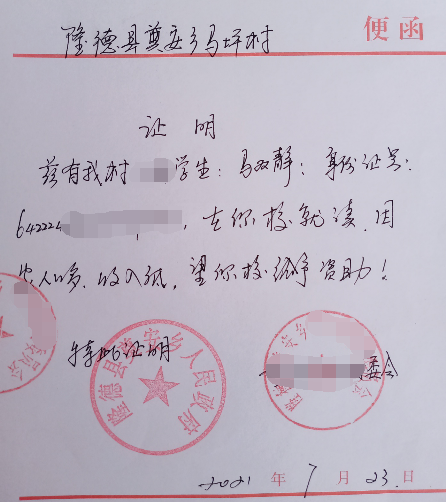 便函
隆德县奠安乡马坪村
证明
兹有我村 学生:马双静;身份证号:
642224 ,在你校就读,因
家人多,收入低,望你校给予资助!
特此证明
隆德县奠安乡人民政府
委会
2021年7月23日